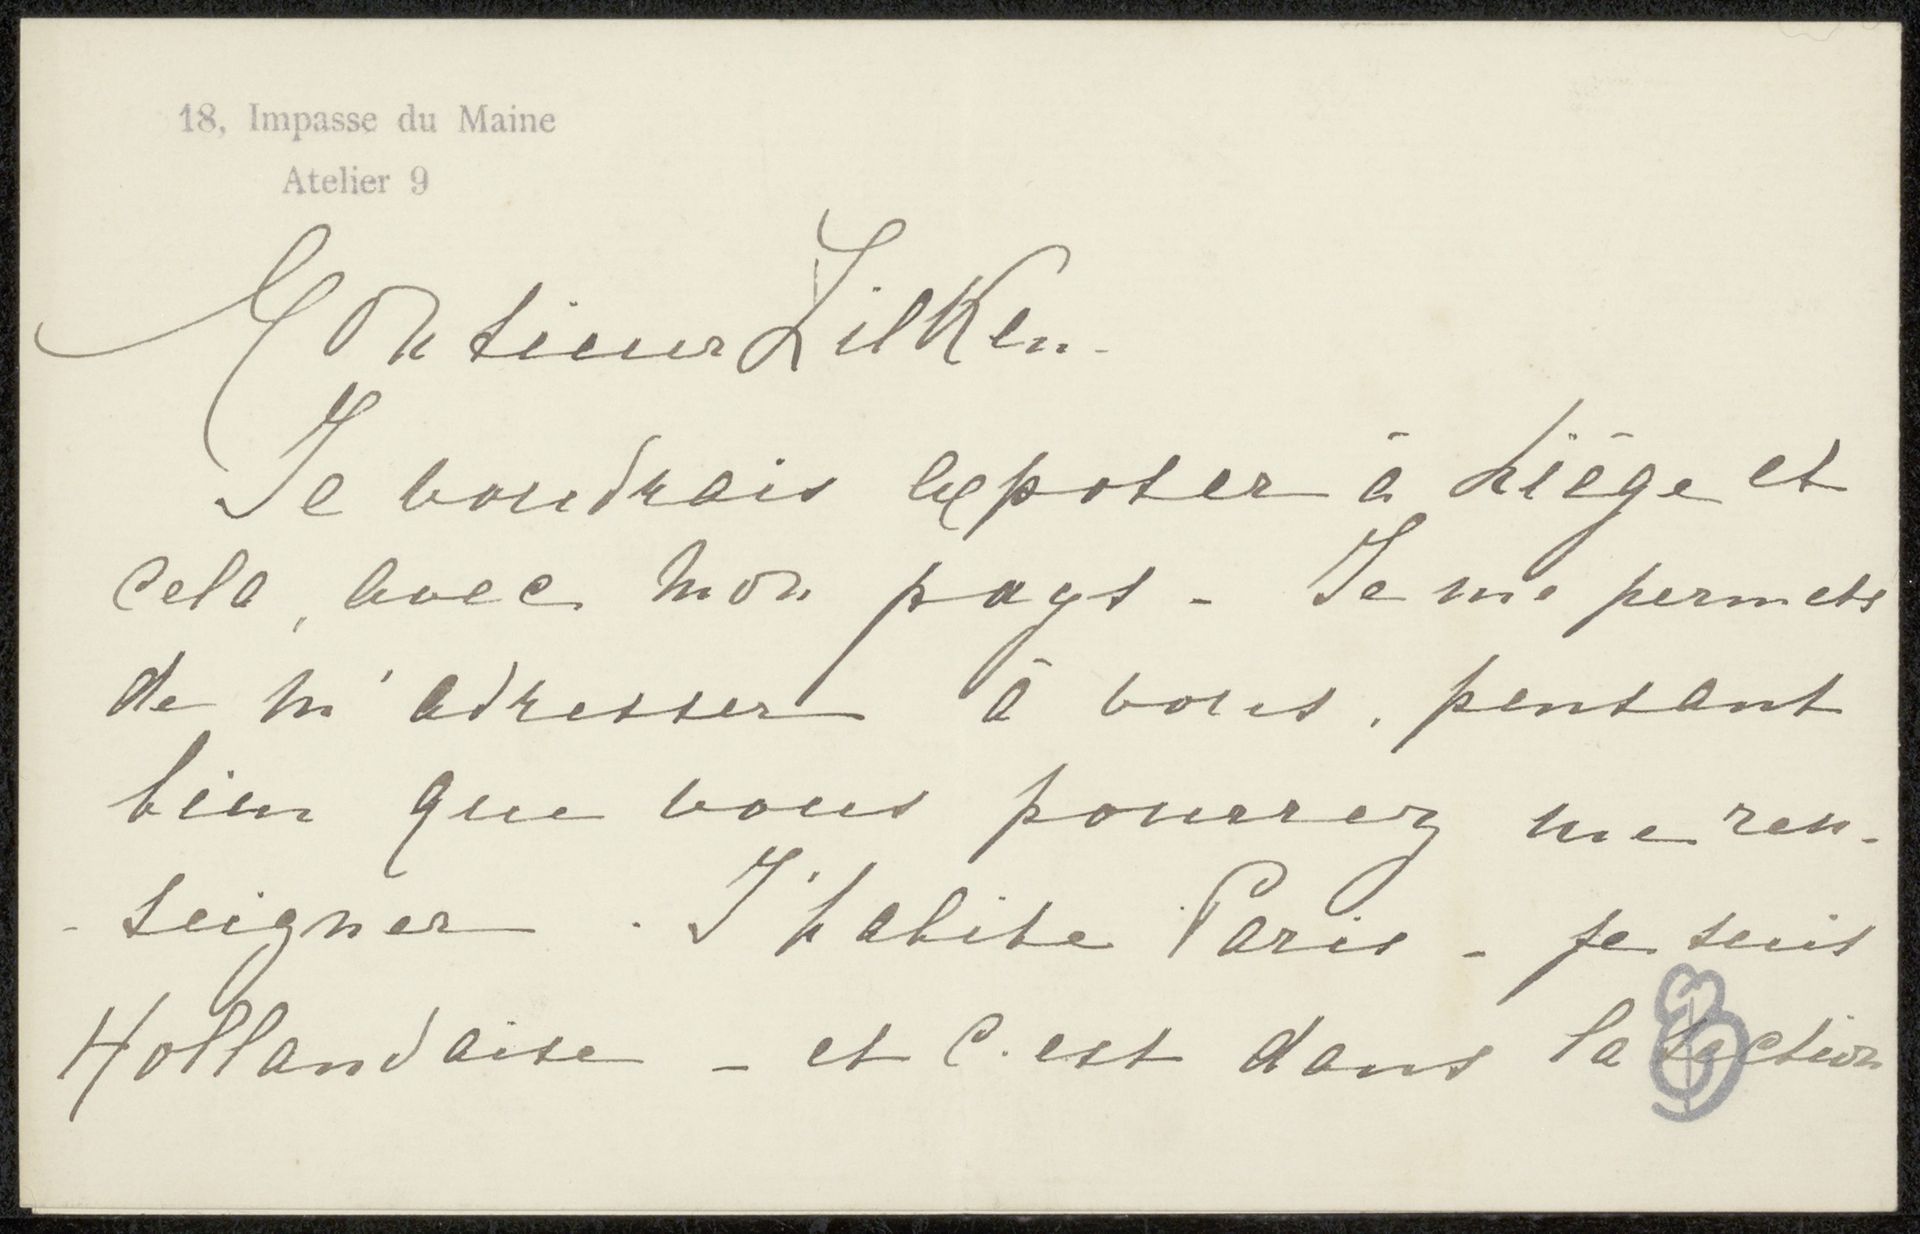 18, Impasse du Maine
Atelier 9
Monsieur Zilken.
Je voudrais exposer à Liège et
cela, avec mon pays - Je me permets
de m'adresser à vous, pensant
bien que vous pourrez me ren-
-seigner. J'habite Paris - je suis
Hollandaise - et c'est dans la section